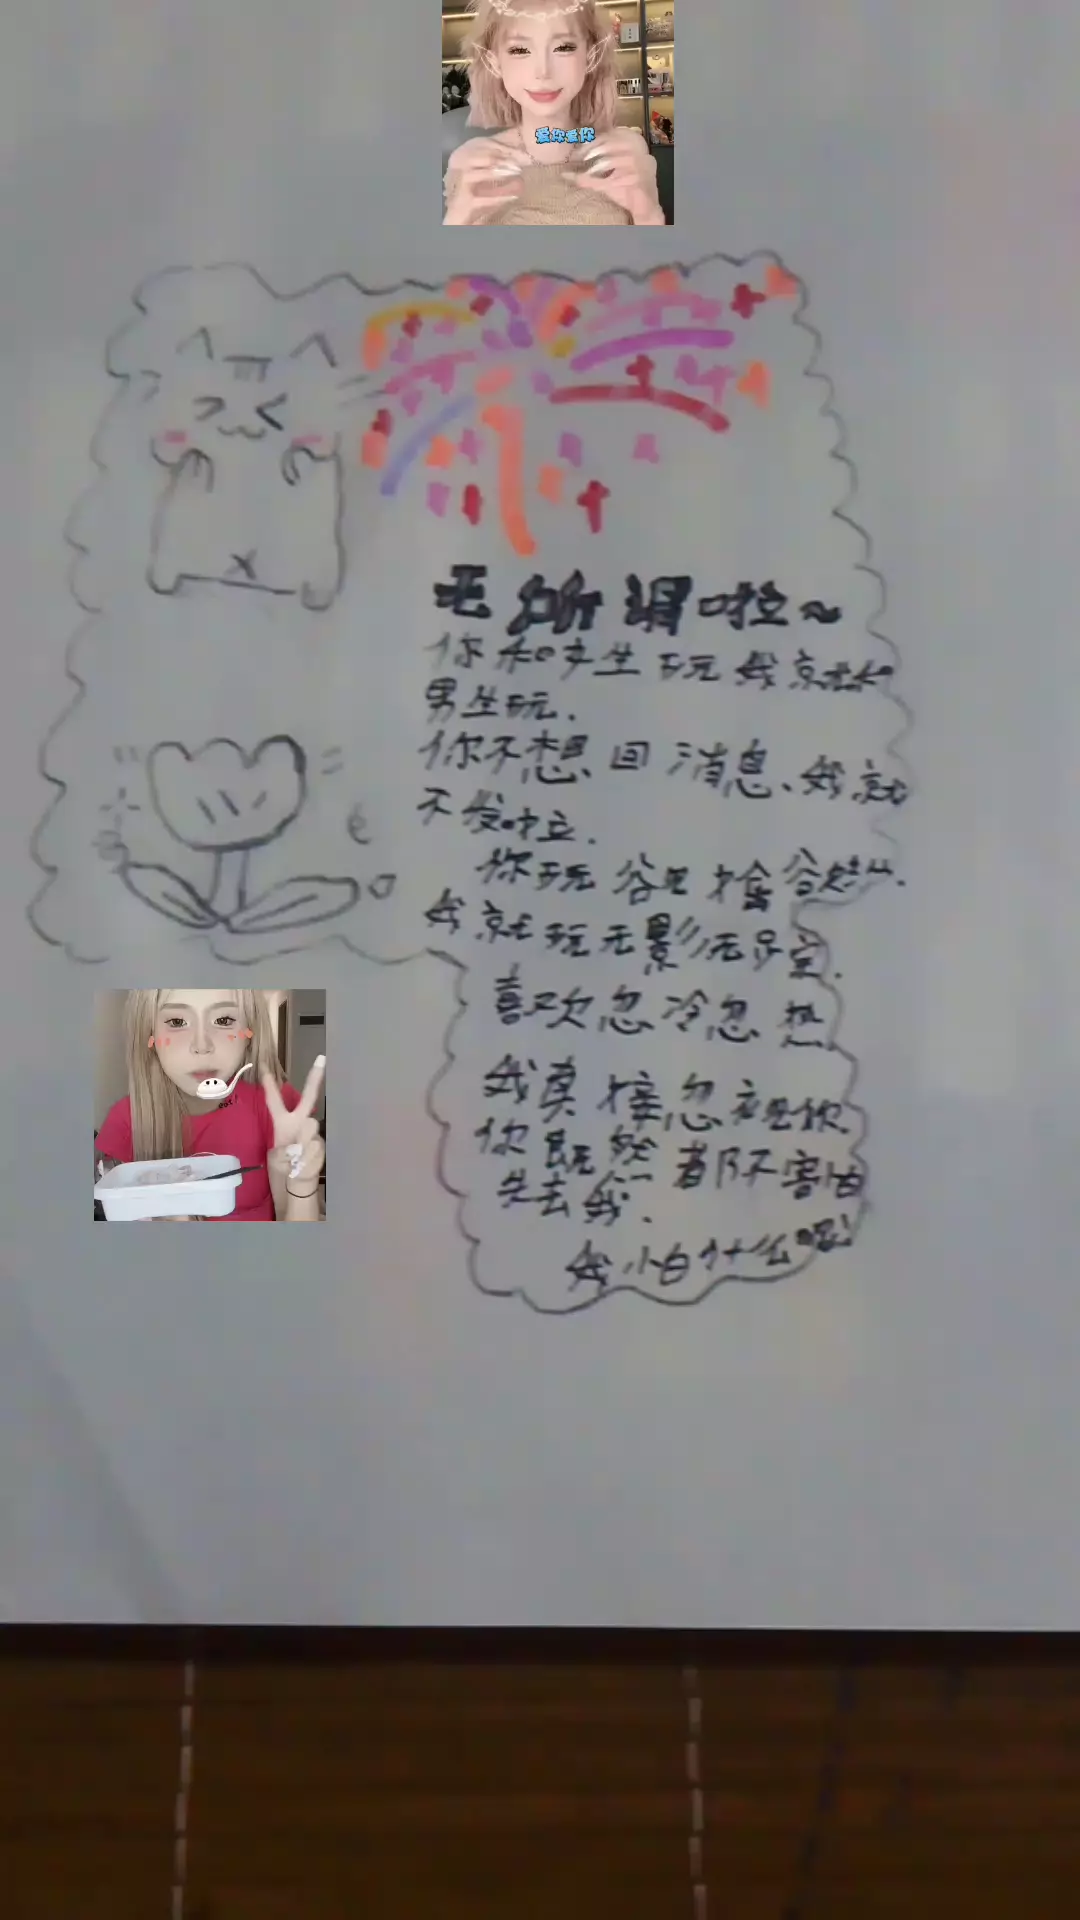 爱你爱你
无所谓啦~
你和女生玩我就和
男生玩.
你不想回消息、我就
不发啦.
你玩欲擒
我就玩无影无踪.
喜欢忽冷忽热
我直接忽视你.
你既然都不害怕
失去我.
我怕什么呢